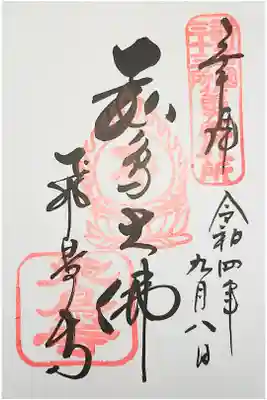 奉拝
令和四年
九月八日
飛鳥大佛
飛鳥寺